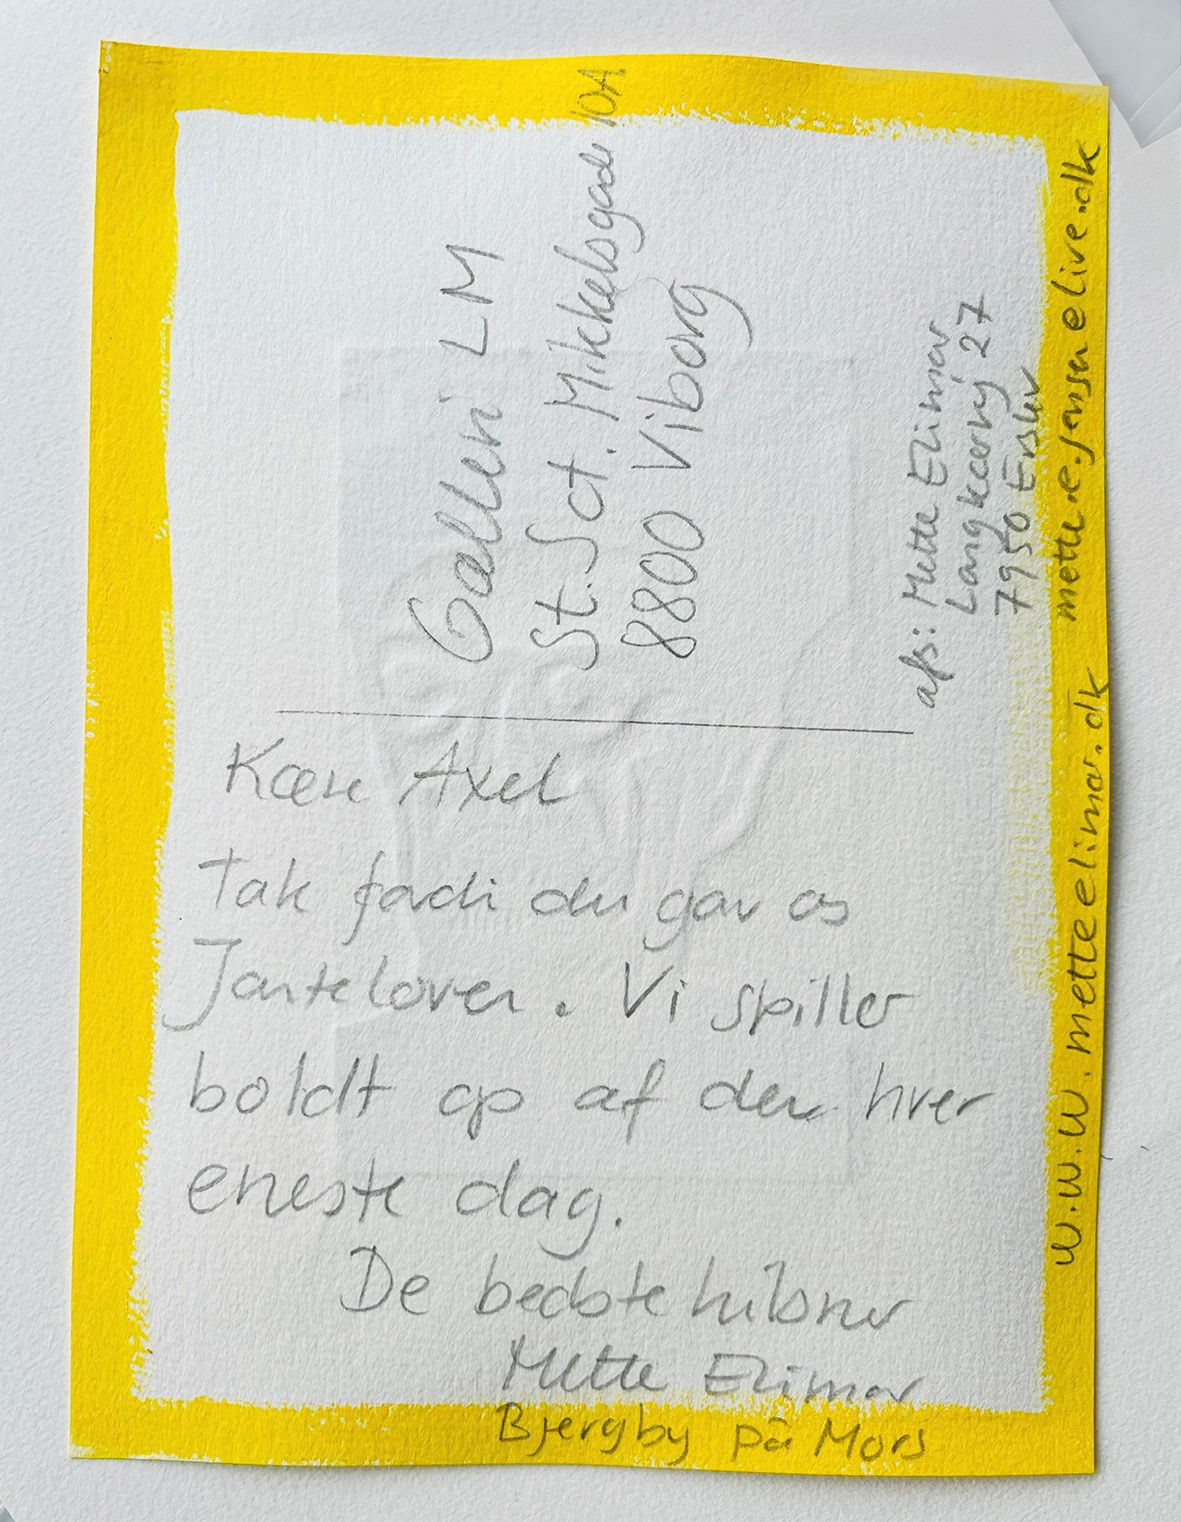 Galleri LM
St. Sct. Mikkelsgade 10A
8800 Viborg
afs: Mette Elimar
Langkærvej 27
7950 Erslev
mette.e.jensen@live.dk
www.metteelimar.dk
Kære Axel
Tak fordi du gav os
Janteloven. Vi spiller
boldt op af den hver
eneste dag.
De bedste hilsner
Mette Elimar
Bjergby på Mors